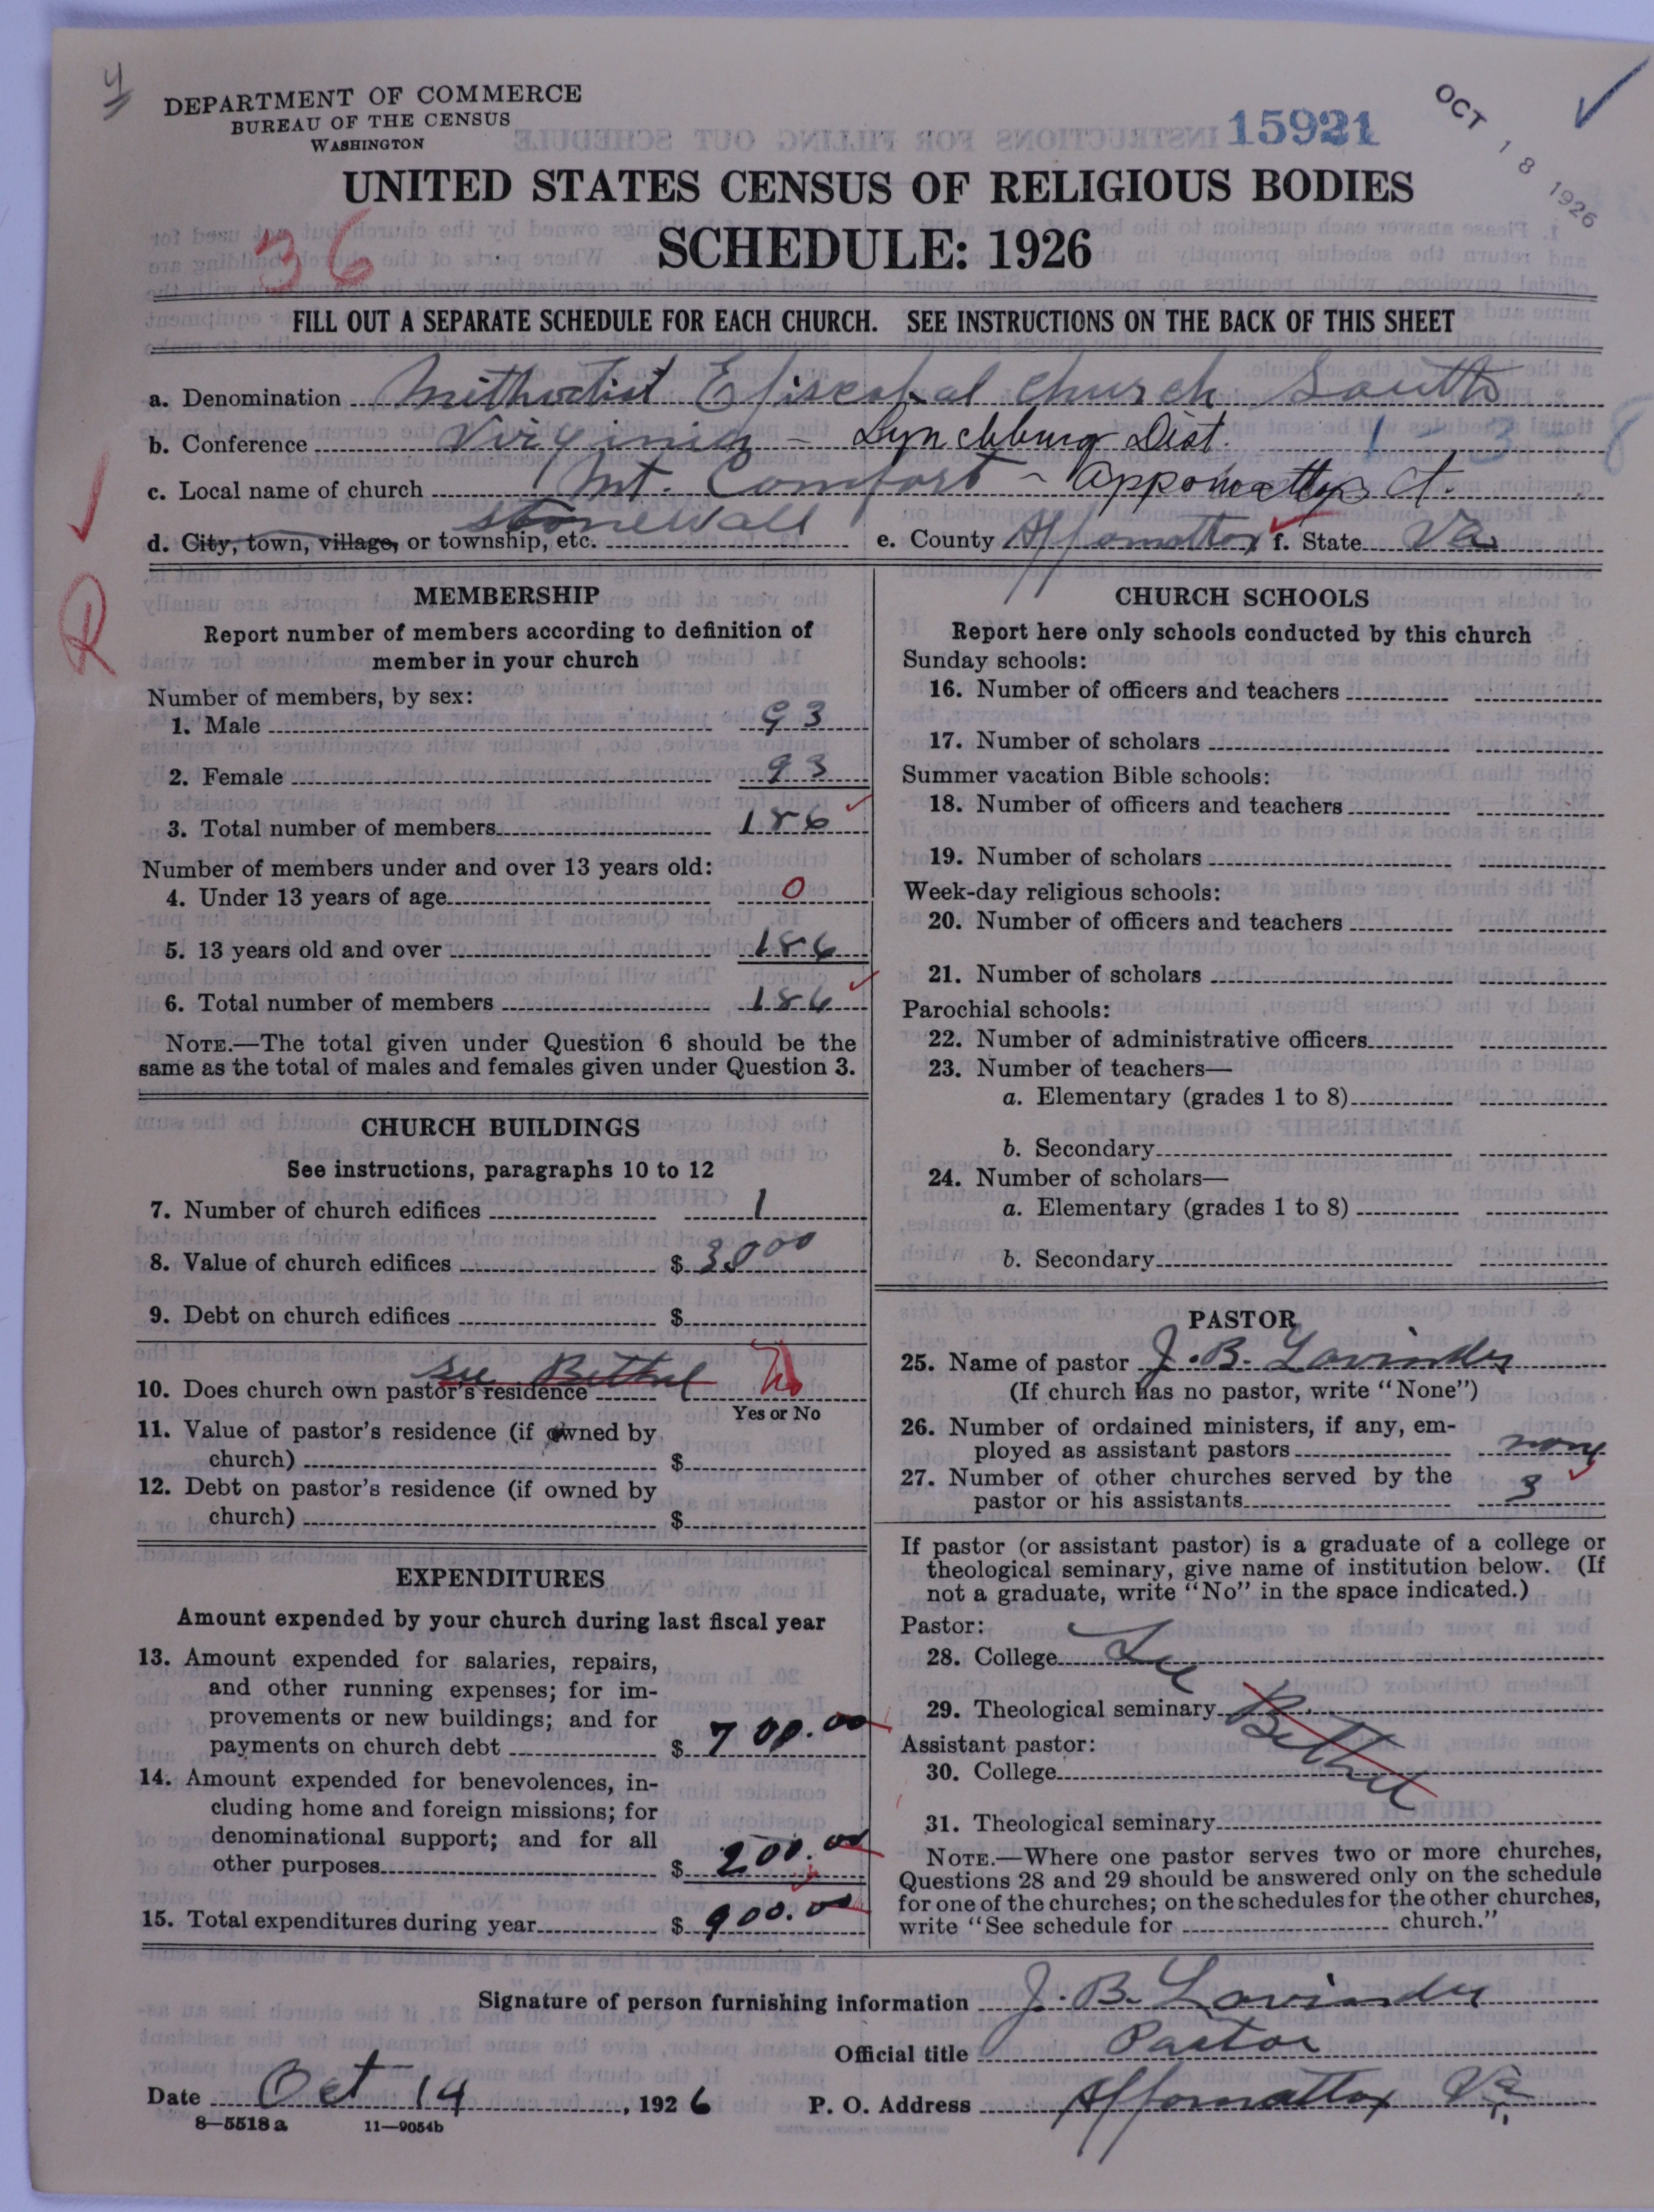 4
DEPARTMENT OF COMMERCE
BUREAU OF THE CENSUS
WASHINGTON
15921
OCT 18 1926
UNITED STATES CENSUS OF RELIGIOUS BODIES
SCHEDULE: 1926
36
FILL OUT A SEPARATE SCHEDULE FOR EACH CHURCH. SEE INSTRUCTIONS ON THE BACK OF THIS SHEET
a. Denomination Methodist Episcopal Church South
b. Conference Virginia - Lynchburg Dist. 1-3-8
c. Local name of church Mt. Comfort - Appomattox Ct.
d. City, town, village, or township, etc. Stonewall e. County Appomattox f. State Va
MEMBERSHIP
Report number of members according to definition of
member in your church
Number of members, by sex:
1. Male 93
2. Female 93
3. Total number of members 186
Number of members under and over 13 years old:
4. Under 13 years of age 0
5. 13 years old and over 186
6. Total number of members 186
NOTE.—The total given under Question 6 should be the
same as the total of males and females given under Question 3.
CHURCH BUILDINGS
See instructions, paragraphs 10 to 12
7. Number of church edifices 1
8. Value of church edifices $ 3000
9. Debt on church edifices $
See Bethel
10. Does church own pastor's residence No
Yes or No
11. Value of pastor's residence (if owned by
church) $
12. Debt on pastor's residence (if owned by
church) $
EXPENDITURES
Amount expended by your church during last fiscal year
13. Amount expended for salaries, repairs,
and other running expenses; for im-
provements or new buildings; and for
payments on church debt $ 700.00
14. Amount expended for benevolences, in-
cluding home and foreign missions; for
denominational support; and for all
other purposes $ 200.00
15. Total expenditures during year $ 900.00
CHURCH SCHOOLS
Report here only schools conducted by this church
Sunday schools:
16. Number of officers and teachers
17. Number of scholars
Summer vacation Bible schools:
18. Number of officers and teachers
19. Number of scholars
Week-day religious schools:
20. Number of officers and teachers
21. Number of scholars
Parochial schools:
22. Number of administrative officers
23. Number of teachers—
a. Elementary (grades 1 to 8)
b. Secondary
24. Number of scholars—
a. Elementary (grades 1 to 8)
b. Secondary
PASTOR
25. Name of pastor J. B. Lavinder
(If church has no pastor, write "None")
26. Number of ordained ministers, if any, em-
ployed as assistant pastors none
27. Number of other churches served by the
pastor or his assistants 3
If pastor (or assistant pastor) is a graduate of a college or
theological seminary, give name of institution below. (If
not a graduate, write "No" in the space indicated.)
Pastor:
28. College See
29. Theological seminary Bethel
Assistant pastor:
30. College
31. Theological seminary
NOTE.—Where one pastor serves two or more churches,
Questions 28 and 29 should be answered only on the schedule
for one of the churches; on the schedules for the other churches,
write "See schedule for church."
Signature of person furnishing information J. B. Lavinder
Official title Pastor
Date Oct 14, 1926 P. O. Address Appomattox Va.
8—5518a 11—9054b